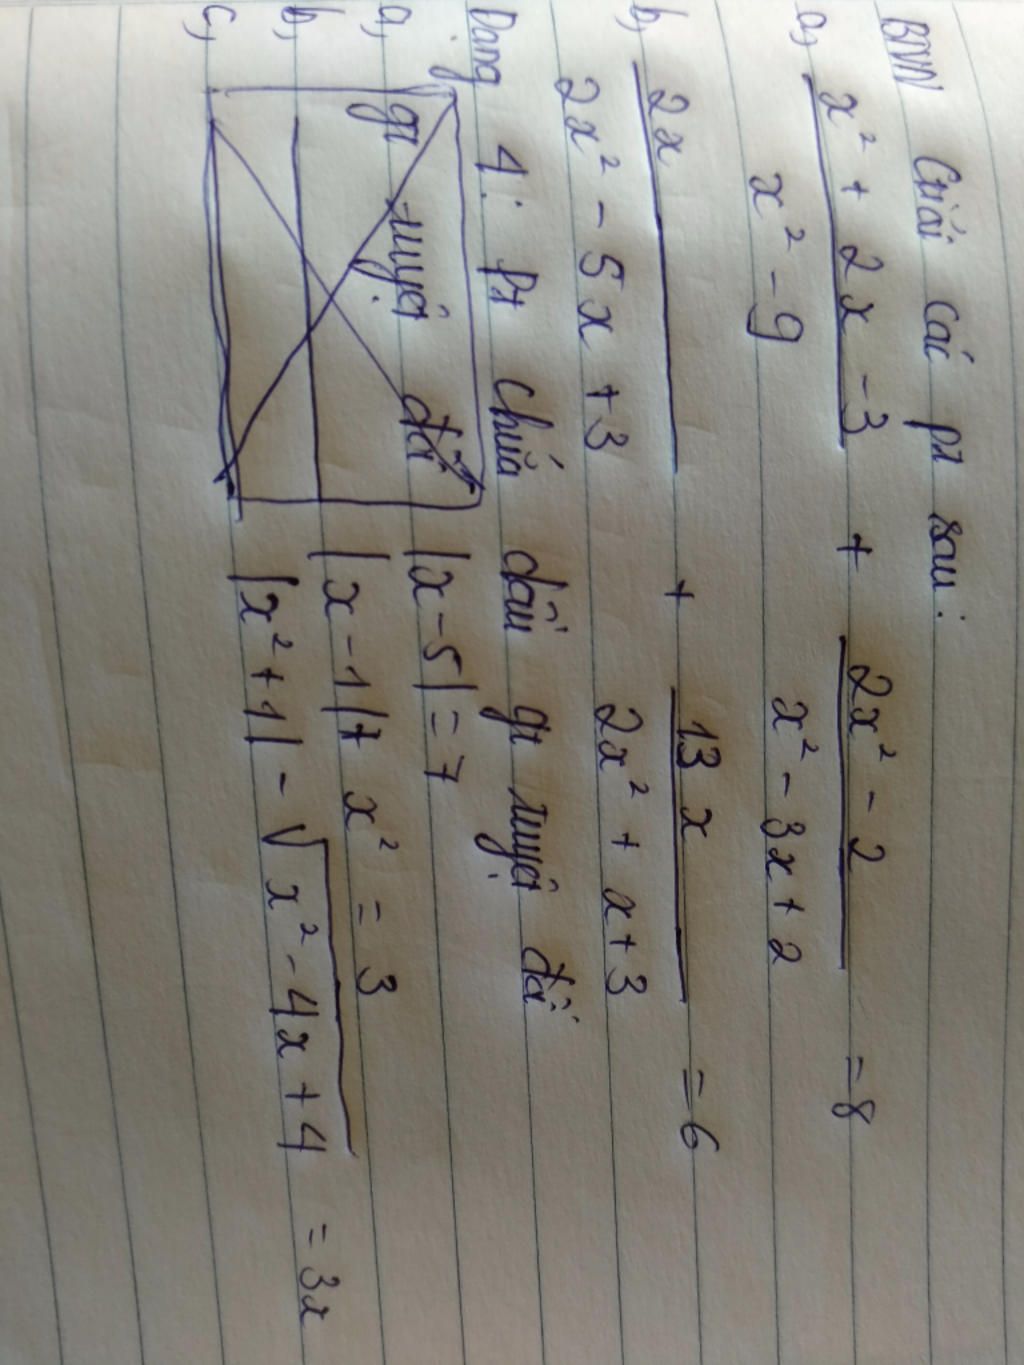 BTVN Giải các pt sau:
a, x² + 2x - 3 / x² - 9 + 2x² - 2 / x² - 3x + 2 = 8
b, 2x / 2x² - 5x + 3 + 13x / 2x² + x + 3 = 6
Dạng 4: Pt chứa dấu gt tuyệt đối
a, gt tuyệt đối |x-5| = 7
b, |x-1| + x² = 3
c, |x²+1| - √x² - 4x + 4 = 3x